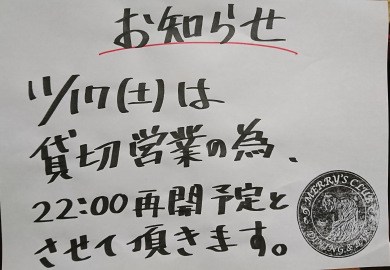 お知らせ
11/17(土)は
貸切営業の為、
22:00再開予定と
させて頂きます。
MERRY'S CLUB